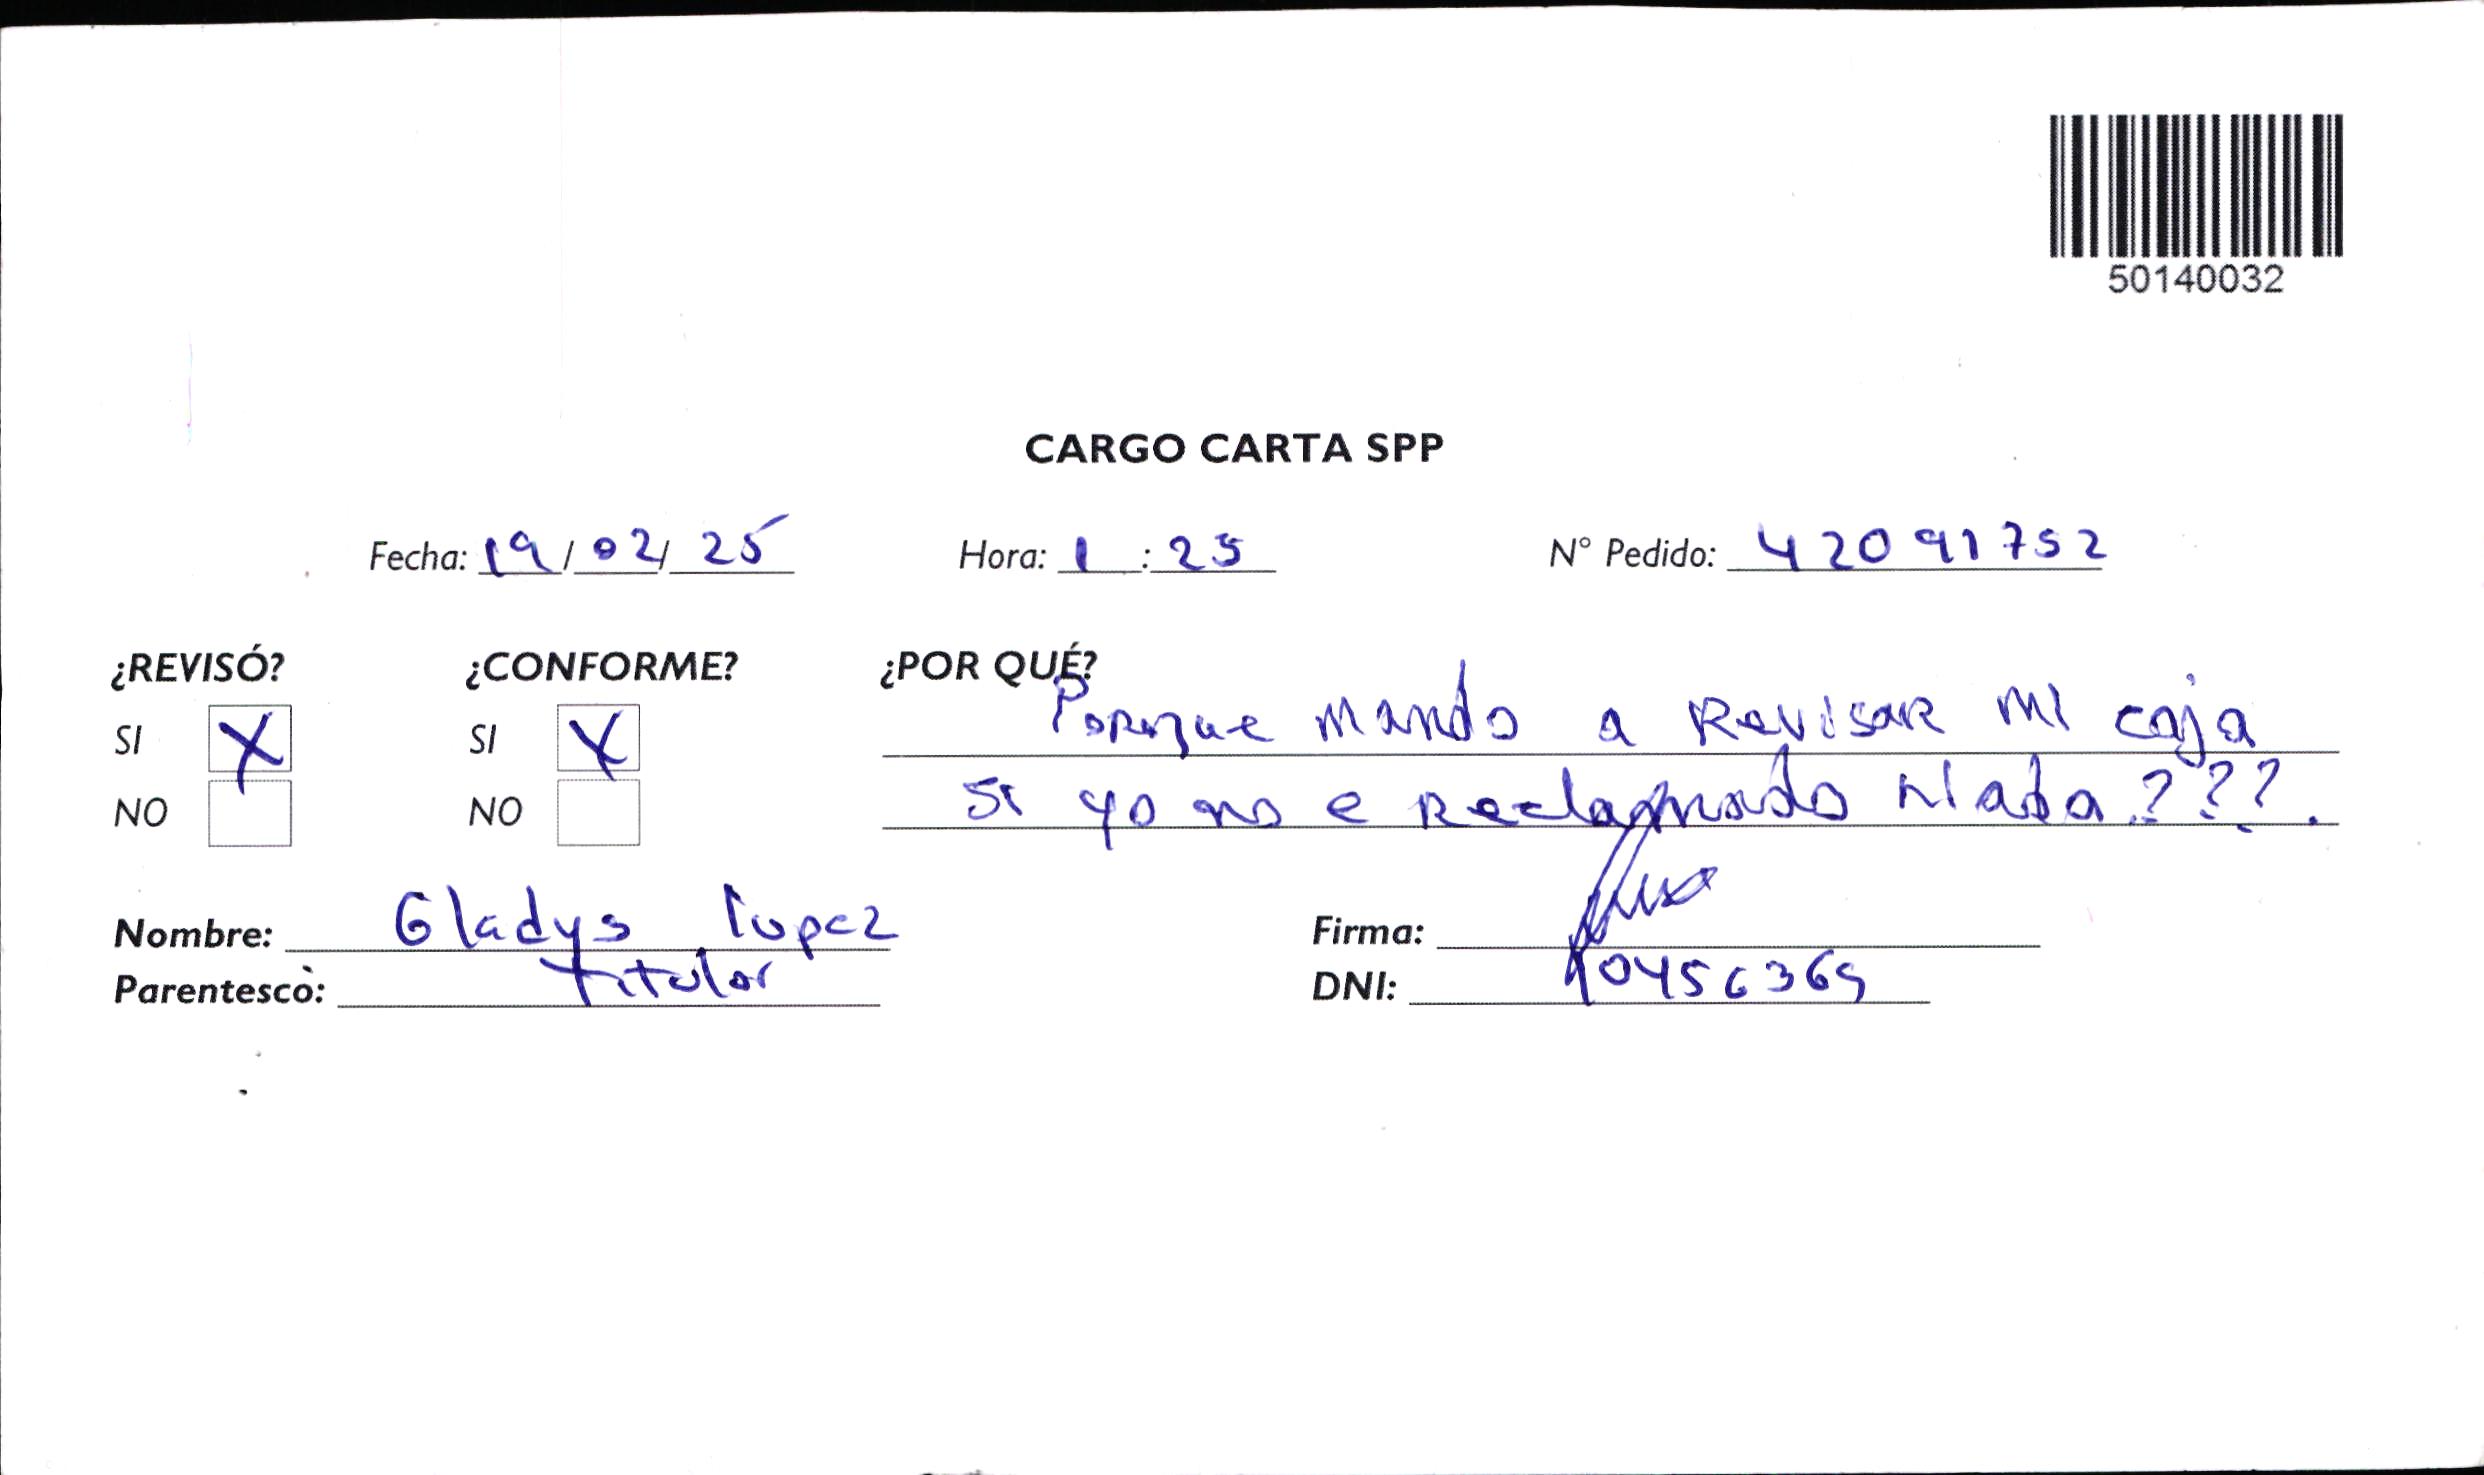 50140032
CARGO CARTA SPP
Fecha: 19/02/25 Hora: 1:25 N° Pedido: 42091752
¿REVISÓ? ¿CONFORME? ¿POR QUÉ?
SI X SI X Porque mando a Revisar mi caja
NO NO si yo no e Reclamado Nada???.
Nombre: Gladys Lopez Firma:
Parentesco: titular DNI: 10456369